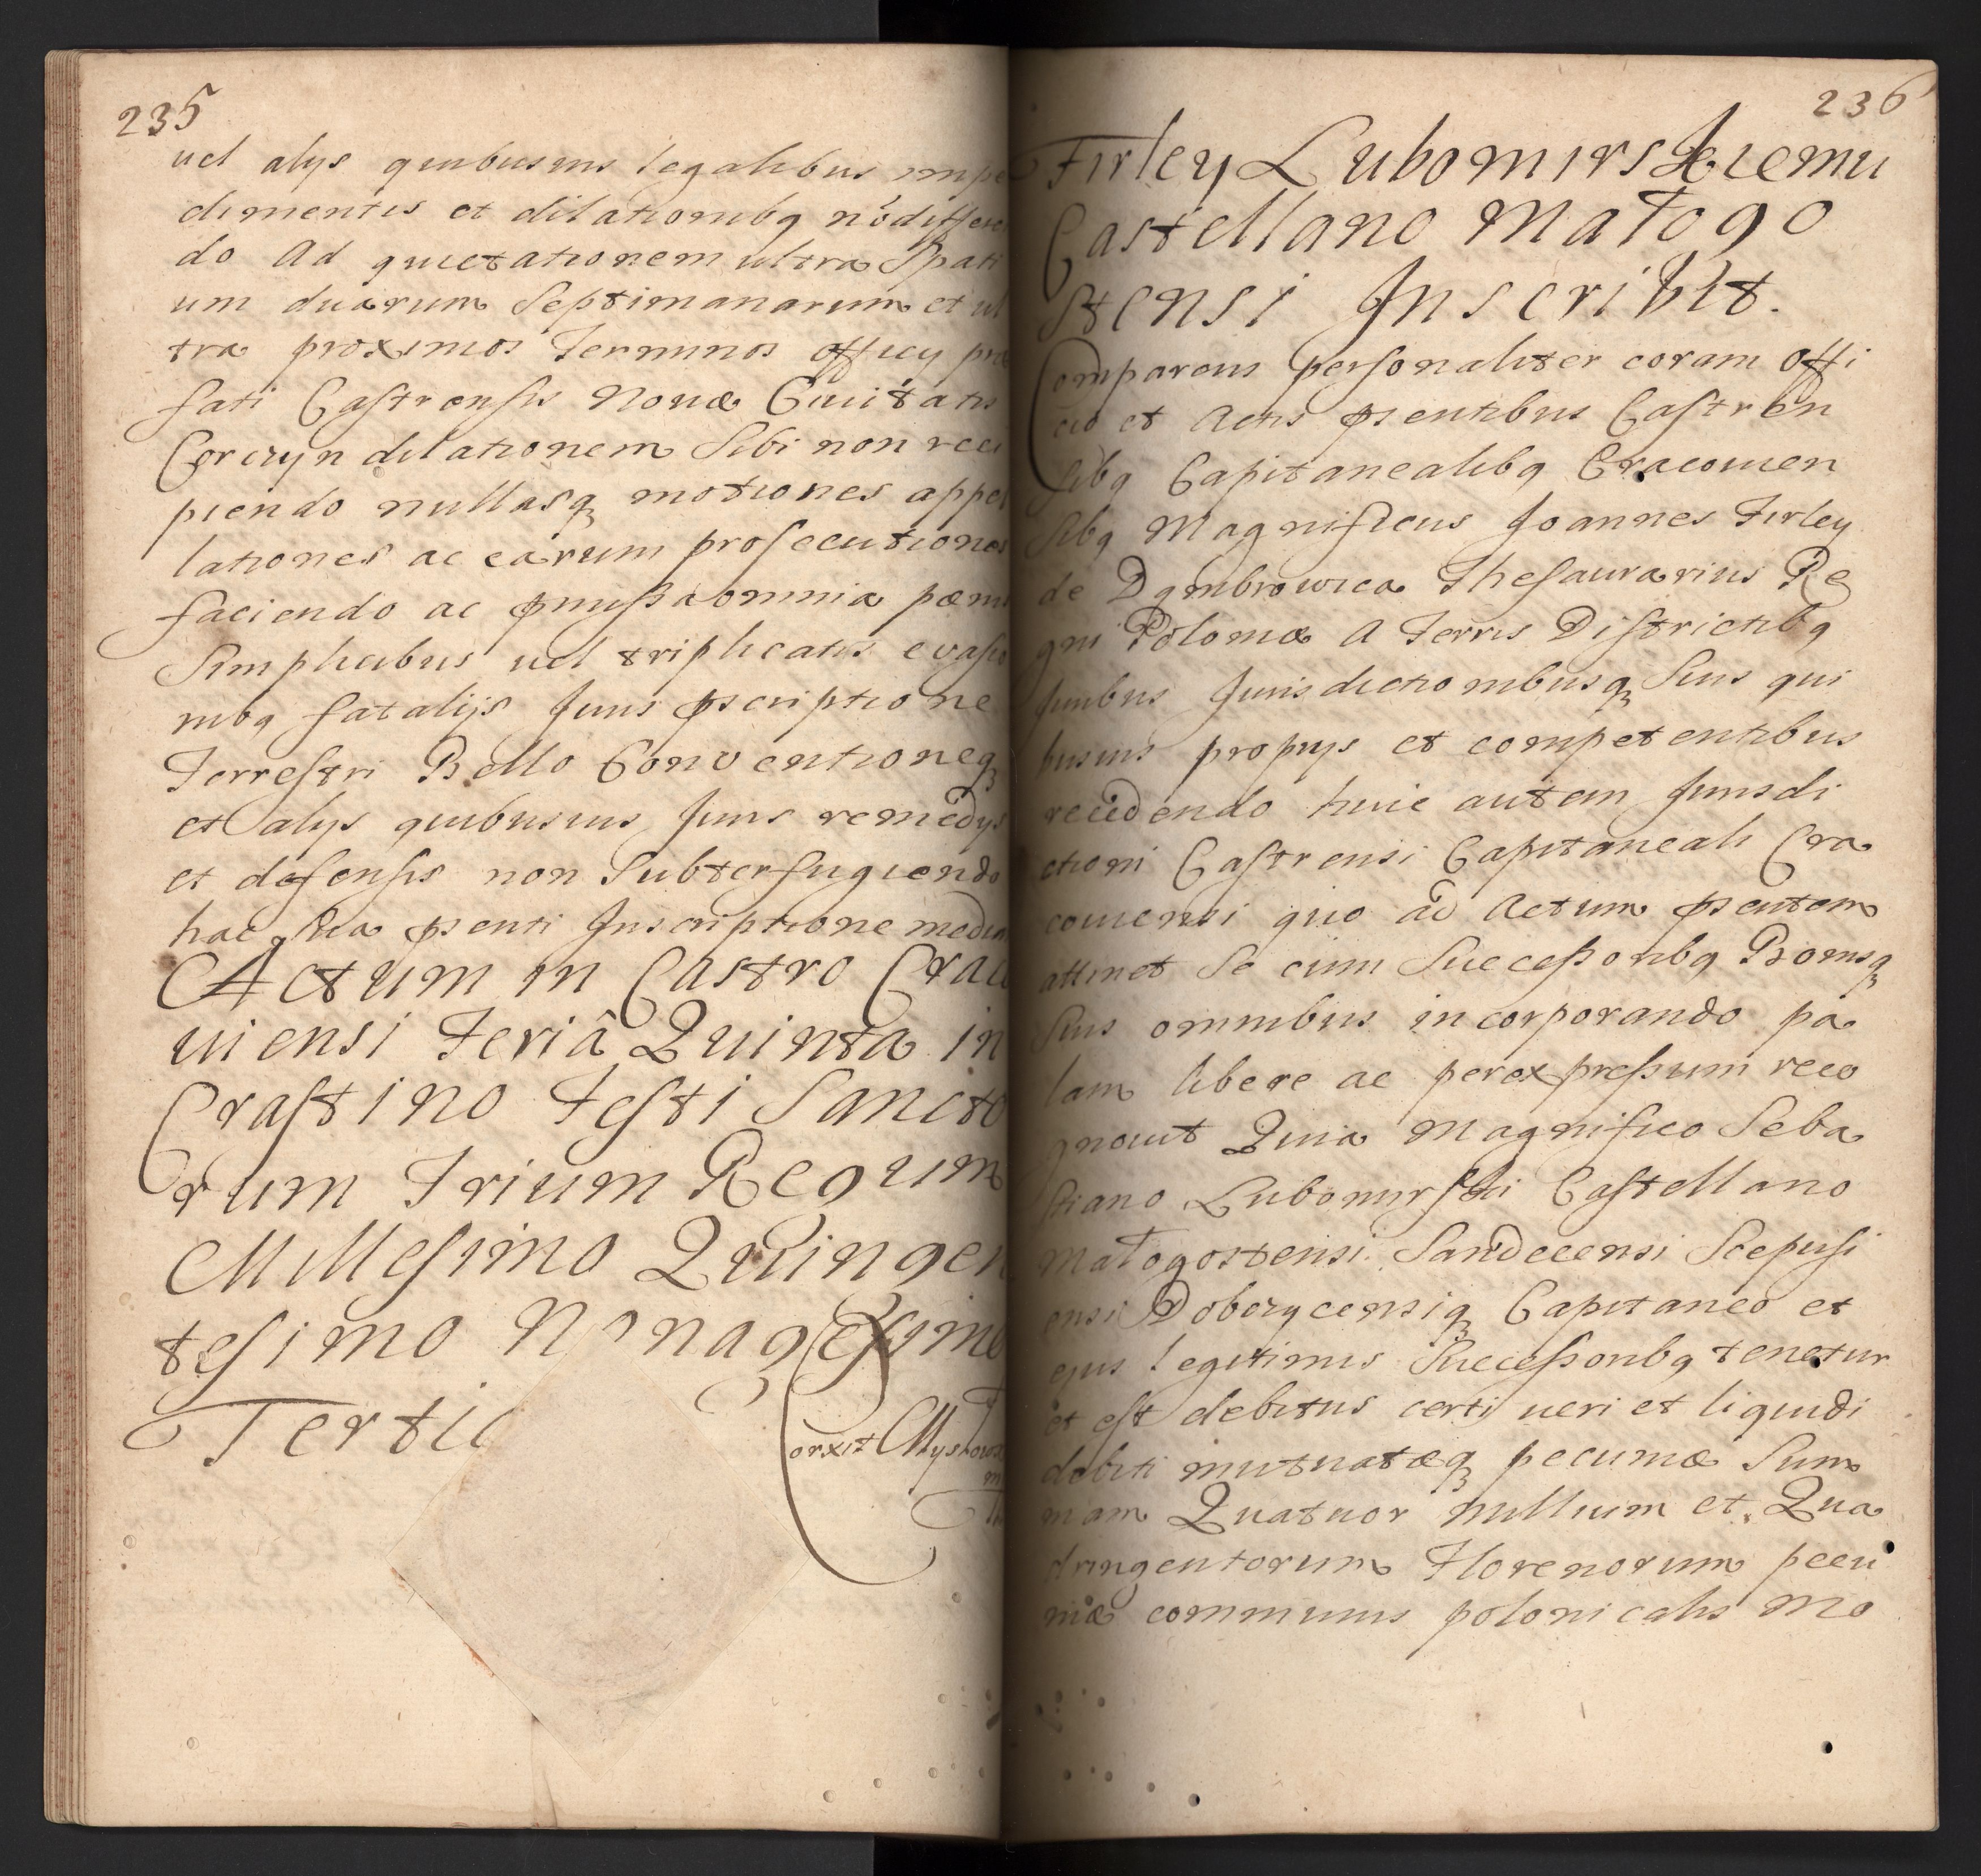 235
uel alys quibusuis legalibus impe
dimentis et dilationibq nõ differen
do Ad quietationem ultra Spati
um duarum Septimanarum et ul
tra proximos Terminos officy præ
fati Castrensis Nouæ Ciuitatis
Corczyn dilationem Sibi non reci
piendo nullasq motiones appel
lationes ac earum prosecutiones
faciendo ac pmißa omnia pæenis
Simplicibus uel triplicatis euasio
nibq fatalijs Juris pscriptione
Terrestri Bello Conuentioneq
et alys quibusuis Juris remedys
et defensis non Subterfugiendo
hac sua psenti Inscriptione median
Actum in Castro Craco
uiensi Feriâ Quinta in
Crastino Festi Sancto
rum Trium Regum
Millesimo Quingen
tesimo Nonagesimo
Tertio
Correxit Myskows
236
Firley Lubomirskiemu
Castellano Małogo
stensi Inscribit.
Comparens personaliter coram Offi
cio et Actis psentibus Castren
sibq Capitanealibq Cracouien
sibq Magnificus Joannes Firley
de Dąmbrowica Thesaurarius Re
gni Poloniæ A Terris Districtibq
Juribus Jurisdictionibusq Suis qui
busuis proprys et competentibus
recedendo huic autem Jurisdi
ctioni Castrensi Capitaneali Cra
couiensi quo ad Actum psentem
attinet Se cum Succeßoribq Bonisq
Suis omnibus incorporando pa
lam libere ac per expreßum reco
gnouit Quia Magnifico Seba
stiano Lubomirski Castellano
Małogostensi Sandecensi Scepusi
ensi Dobczycensiq Capitaneo et
ejus legitimis Succeßoribq tenetur
et est debitus certi ueri et liquidi
debiti mutuatæq pecuniæ Sum
mam Quatuor millium et Qua
dringentorum Florenorum pecu
niæ communis polonicalis Mo